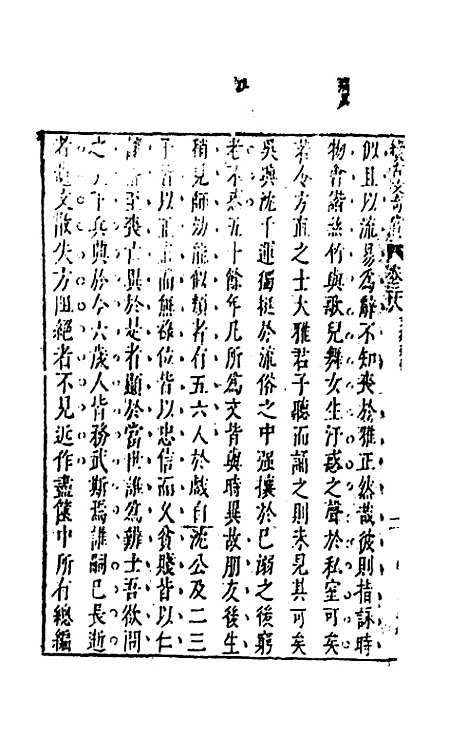 似且以流易為辭不知喪於雅正然哉彼則指詠時
物會諧絲竹與歌兒舞女生汙惑之聲於私室可矣
若令方直之士大雅君子聽而誦之則未見其可矣
吳興沈千運獨挺於流俗之中强攘於已溺之後窮
老不惑五十餘年凡所為文皆與時異故朋友後生
稍見師効能似類者有五六人於戲自沈公及二三
子皆以正直而無祿位皆以忠信而久貧賤皆以仁
讓而至喪亡異於是者顯於當世誰為辯士吾欲問
之 兵興於今六歲人皆務武斯焉誰嗣已長逝
者遺文散失方阻絕者不見近作盡篋中所有總編